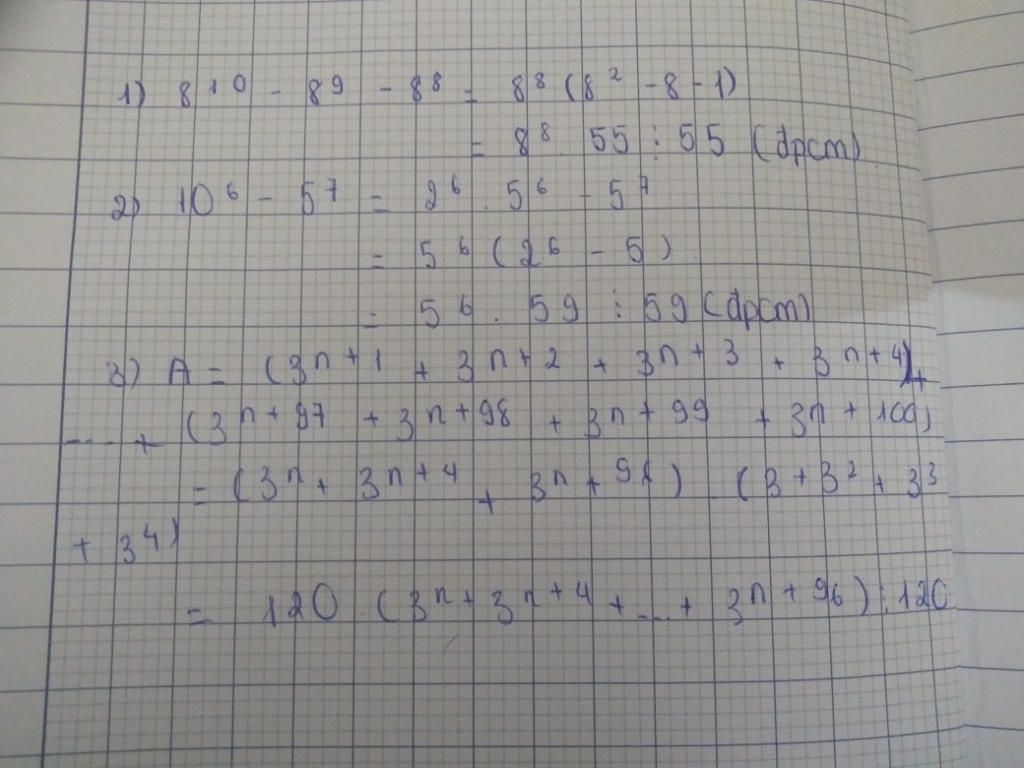 1) 8¹⁰ - 8⁹ - 8⁸ = 8⁸ (8² - 8 - 1)
= 8⁸. 55 ⋮ 55 (đpcm)
2) 10⁶ - 5⁷ = 2⁶ . 5⁶ - 5⁷
= 5⁶ (2⁶ - 5)
= 5⁶ . 59 ⋮ 59 (đpcm)
3) A = (3ⁿ⁺¹ + 3ⁿ⁺² + 3ⁿ⁺³ + 3ⁿ⁺⁴) +
... + (3ⁿ⁺⁹⁷ + 3ⁿ⁺⁹⁸ + 3ⁿ⁺⁹⁹ + 3ⁿ⁺¹⁰⁰)
= (3ⁿ + 3ⁿ⁺⁴ + ) . (3 + 3² + 3³
+ 3⁴)
= 120 . (3ⁿ + 3ⁿ⁺⁴ + ... + 3ⁿ⁺⁹⁶) ⋮ 120